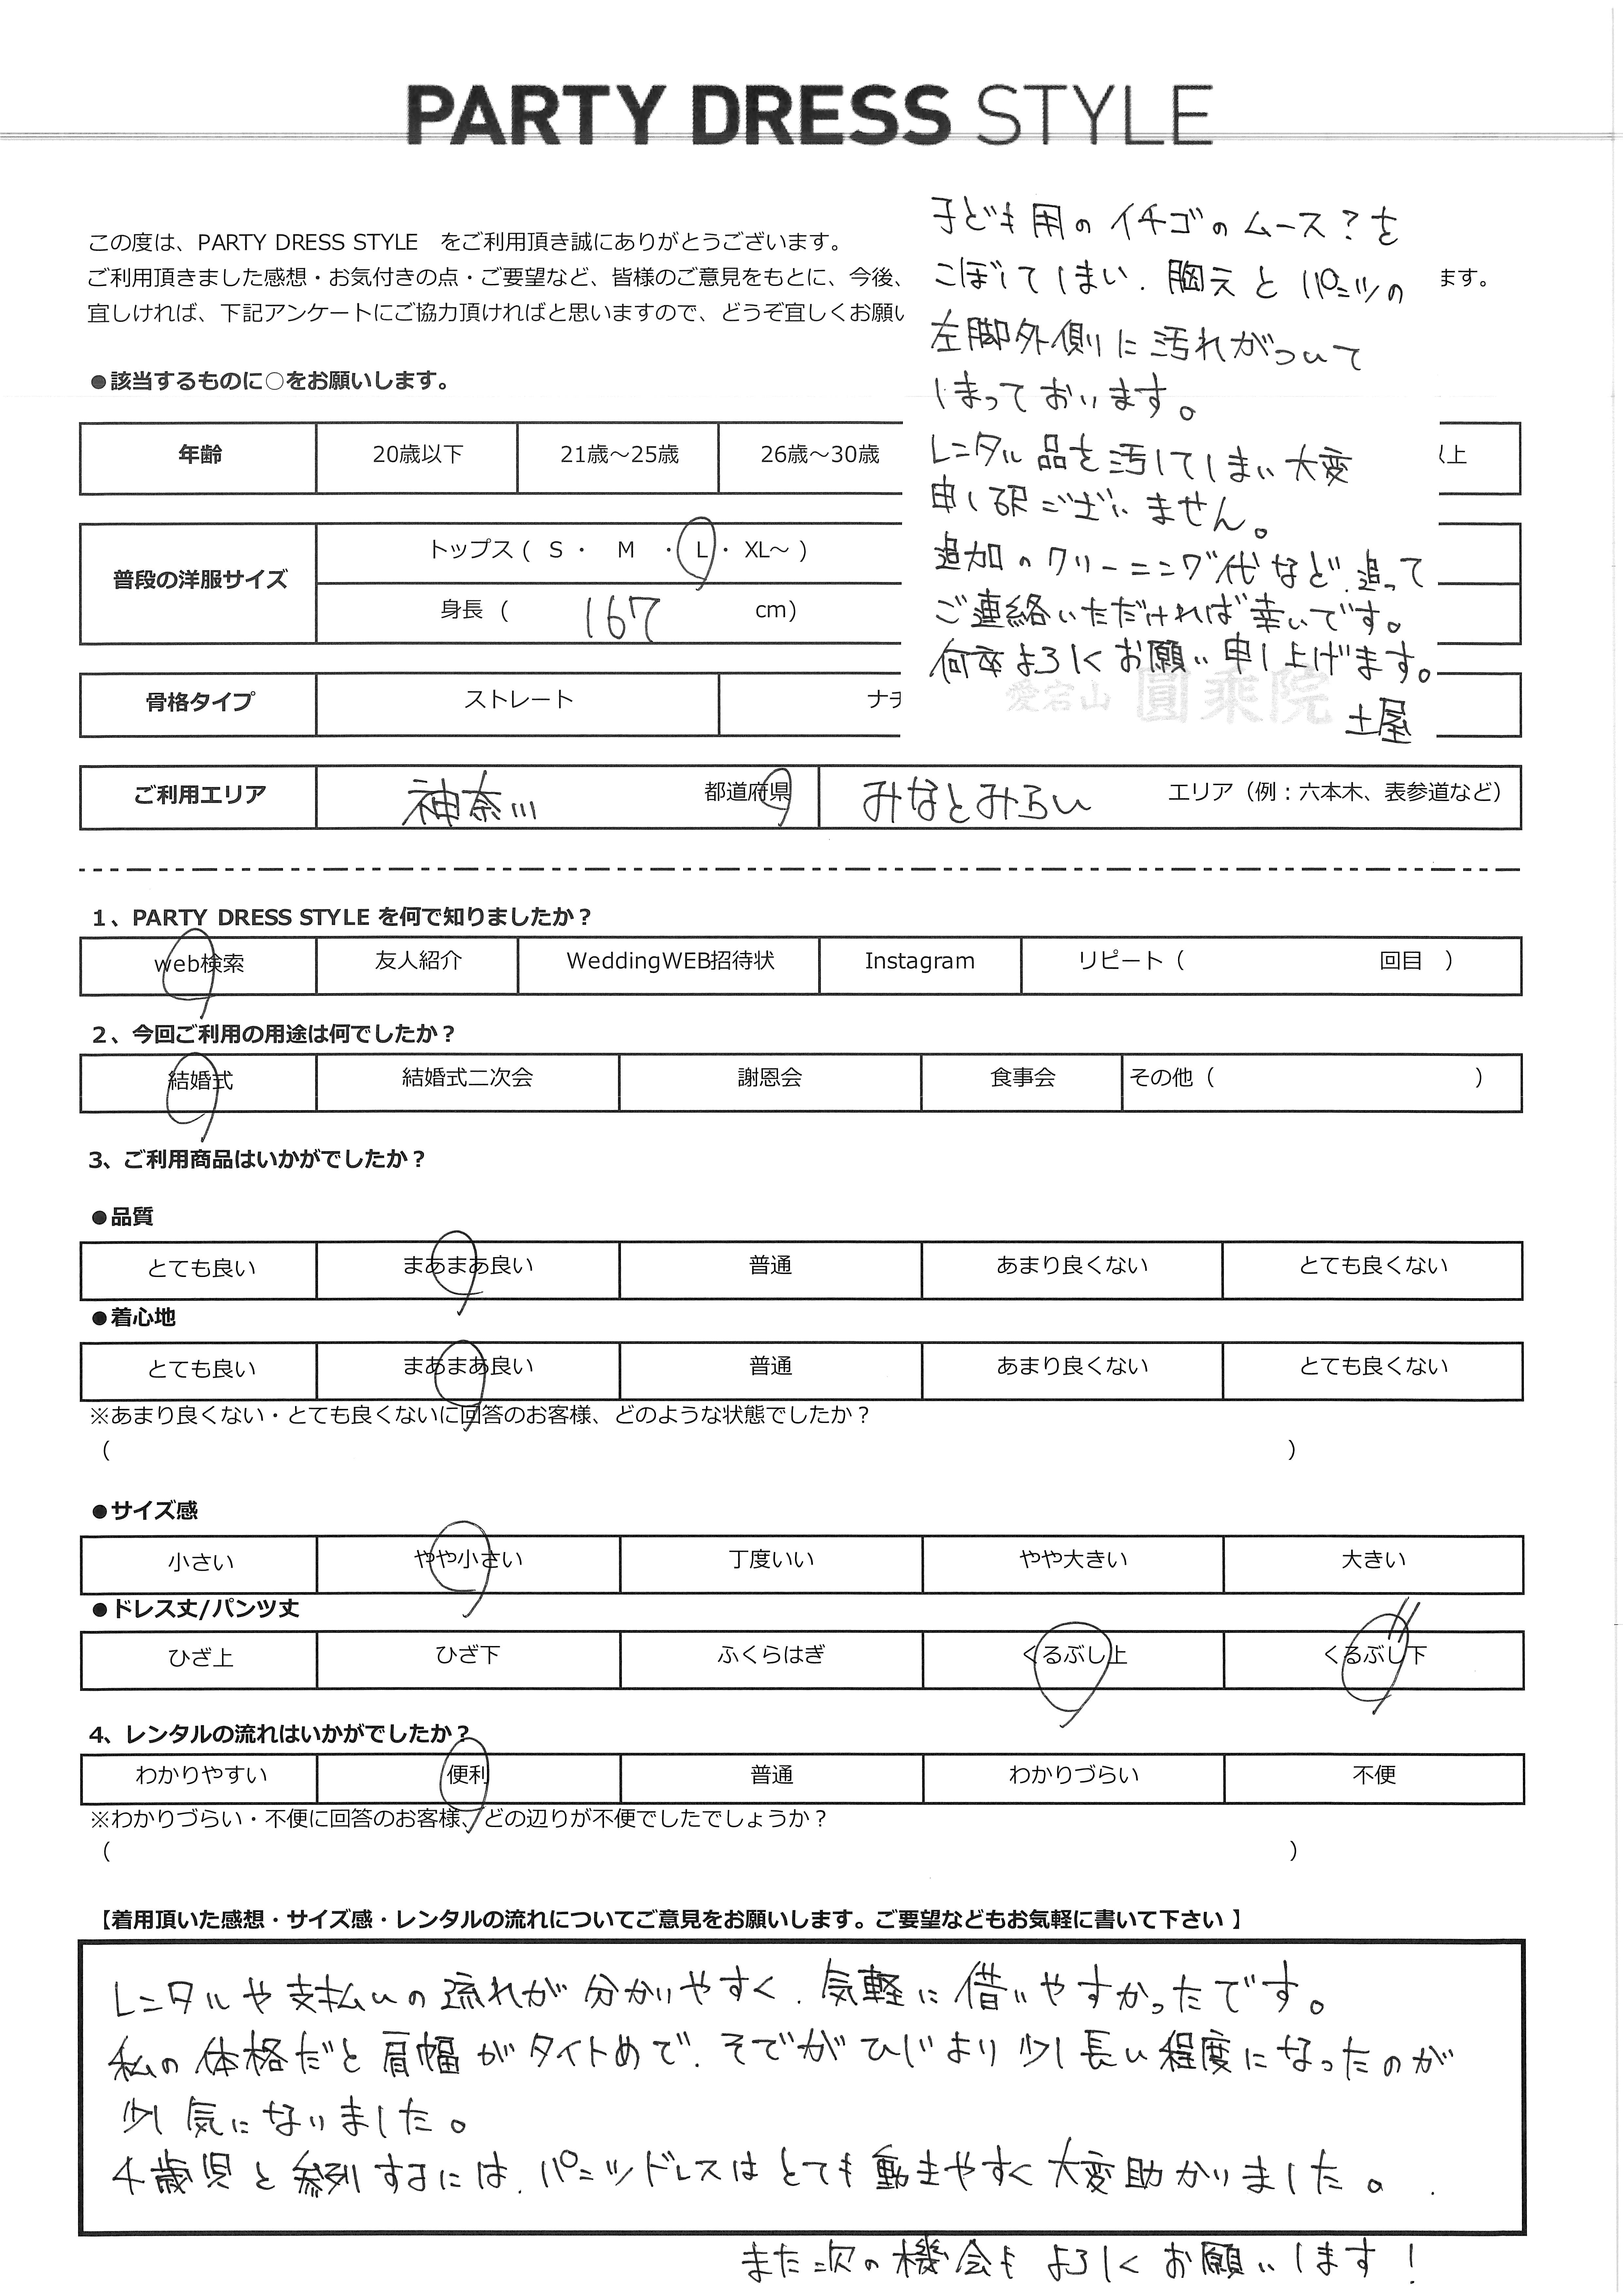 PARTY DRESS STYLE
この度は、PARTY DRESS STYLE をご利用頂き誠にありがとうございます。
ご利用頂きました感想・お気付きの点・ご要望など、皆様のご意見をもとに、今後、
ます。
宜しければ、下記アンケートにご協力頂ければと思いますので、どうぞ宜しくお願い
子ども用のイチゴのムース?を
こぼしてしまい、胸元とパンツの
左脚外側に汚れがついて
しまっております。
レンタル品を汚してしまい大変
申し訳ございません。
追加のクリーニング代など、追って
ご連絡いただければ幸いです。
何卒よろしくお願い申し上げます。
愛宕山 圓乗院
土屋
●該当するものに○をお願いします。
年齢 20歳以下 21歳～25歳 26歳～30歳 以上
普段の洋服サイズ トップス ( S ・ M ・ L ・ XL～ )
身長 ( 167 cm)
骨格タイプ ストレート ナチ
ご利用エリア 神奈川 都道府県 みなとみらい エリア（例：六本木、表参道など）
1、PARTY DRESS STYLE を何で知りましたか？
web検索 友人紹介 WeddingWEB招待状 Instagram リピート（ 回目 ）
2、今回ご利用の用途は何でしたか？
結婚式 結婚式二次会 謝恩会 食事会 その他（ ）
3、ご利用商品はいかがでしたか？
●品質
とても良い まあまあ良い 普通 あまり良くない とても良くない
●着心地
とても良い まあまあ良い 普通 あまり良くない とても良くない
※あまり良くない・とても良くないに回答のお客様、どのような状態でしたか？
（ ）
●サイズ感
小さい やや小さい 丁度いい やや大きい 大きい
●ドレス丈/パンツ丈
ひざ上 ひざ下 ふくらはぎ くるぶし上 くるぶし下
4、レンタルの流れはいかがでしたか？
わかりやすい 便利 普通 わかりづらい 不便
※わかりづらい・不便に回答のお客様、どの辺りが不便でしたでしょうか？
（ ）
【着用頂いた感想・サイズ感・レンタルの流れについてご意見をお願いします。ご要望などもお気軽に書いて下さい 】
レンタルや支払いの流れが分かりやすく、気軽に借りやすかったです。
私の体格だと肩幅がタイトめで、そでがひじより少し長い程度になったのが
少し気になりました。
4歳児と参列するには、パンツドレスはとても動きやすく大変助かりました。
また次の機会もよろしくお願いします！